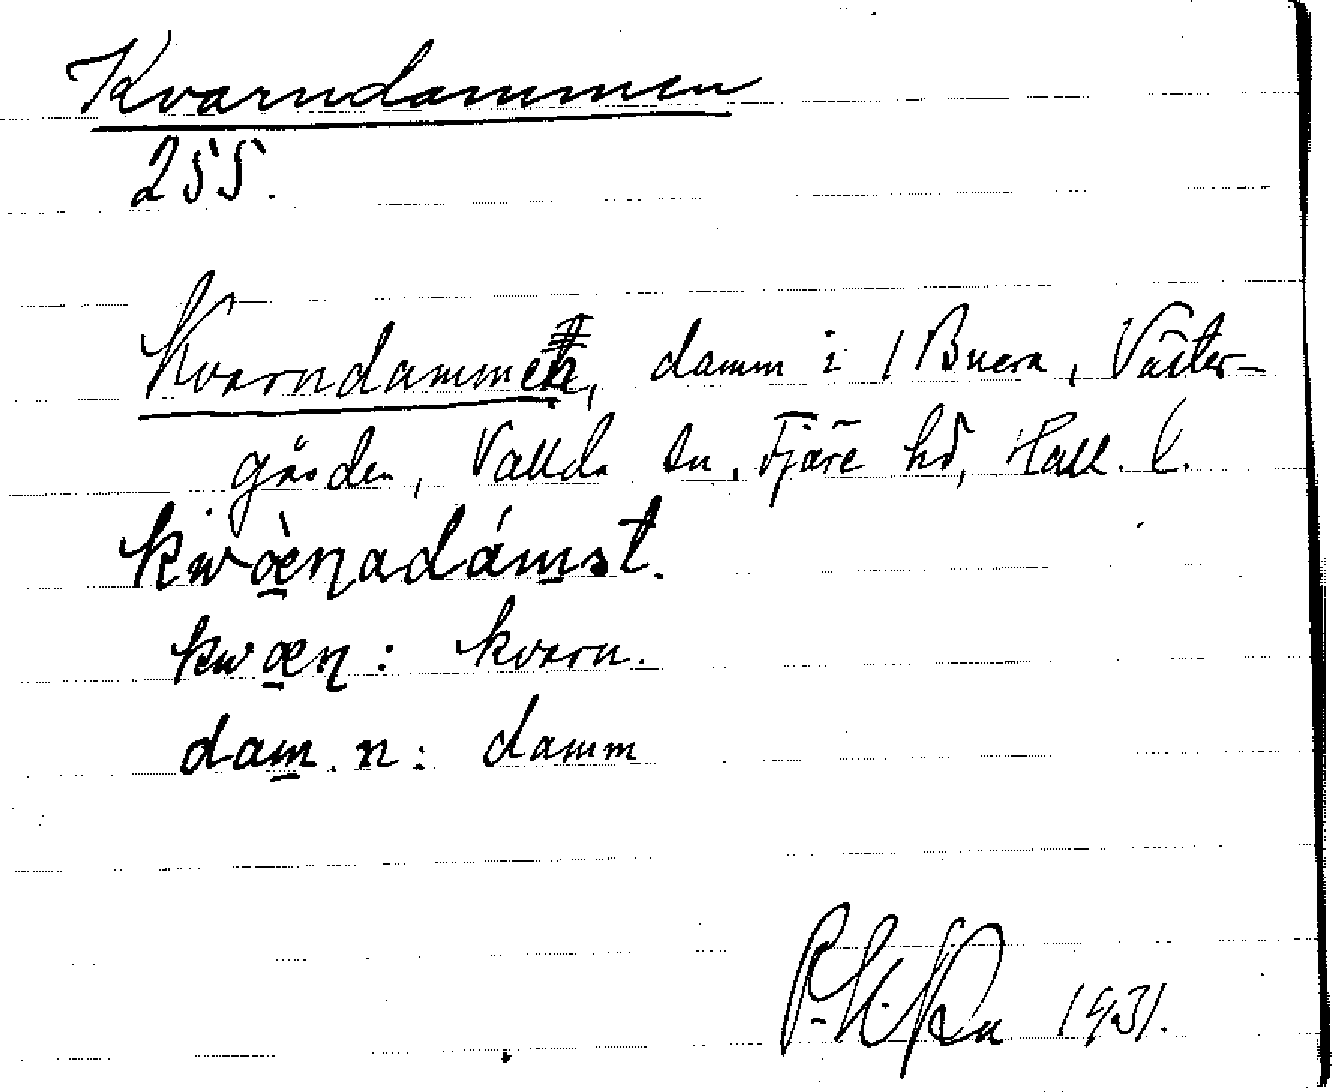 Kvarndammen
255.
Kvarndammen, damm i 1 Buera, Väster-
gården, Vallda sn, Fjäre hd, Hall. l.
kwæ̀ṇadámət.
kwæṇ: kvarn.
dam̲. n: damm
1931.